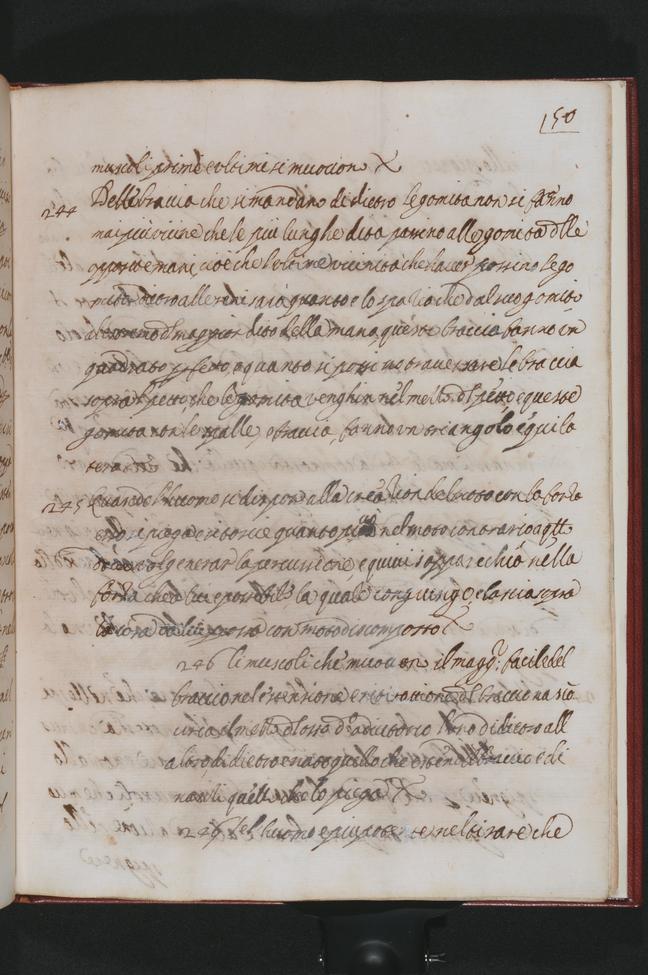 150
muscoli prima e ultimi si muovion
244 Delle bracia che si mandano di dietro le gomita non si faño
mai piu vicine che le piu lunghe dita passino alle gomita dlle
opposite mani, cioe che l'ultime vicinita che haver possino le go
mita dietro alle reni sara quanto e lo spatio che è dal suo gomito
alestremo d maggior dito della mana, queste braccia fanno un
quadrato pffetto, e quanto si possino traversare le braccia
sopra l petto, che le gomita venghin nel mezzo dl petto, e queste
gomita con le spalle, e braccia, fanno un triangolo equila
tero
245 Quando l'huomo si dispon alla creation del moto con la forza
esso si piega e si torcie quanto più nel moto contrario a qll
dove vol generar la percussione, e quivi s'apparechia nella
forza che a lui e possibile la quale congiunge, e lascia sopra
la cosa da lui percossa con moto dicomposto
246 li muscoli che muoven il magg: facile del
braccio nel estensione e retracione dl braccio nascō
circa il mezzo dl osso dº adiutorio l uno di dietro all
altro, di dietro e nato quello che estende l braccio e di
nanti quello che lo piega
246 se l huomo e piu potente nel tirare che